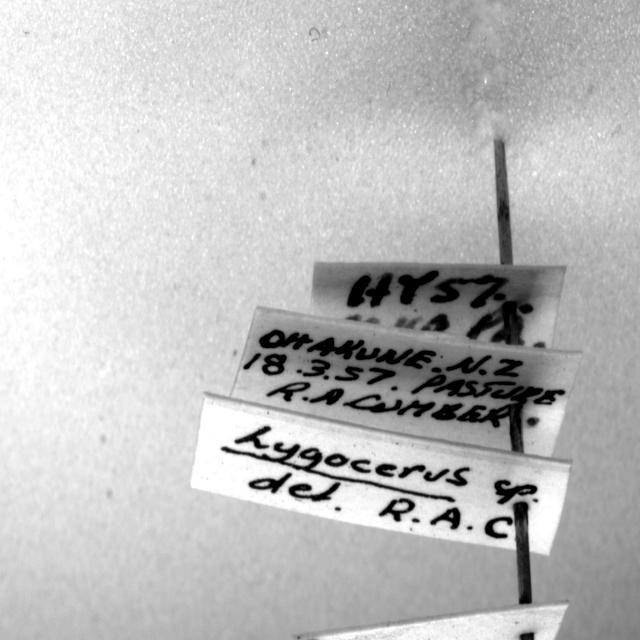 HY57.
OHAKUNE. N.Z
18.3.57. PASTURE
R.A CUMBER
Lygocerus sp.
det. R.A.C